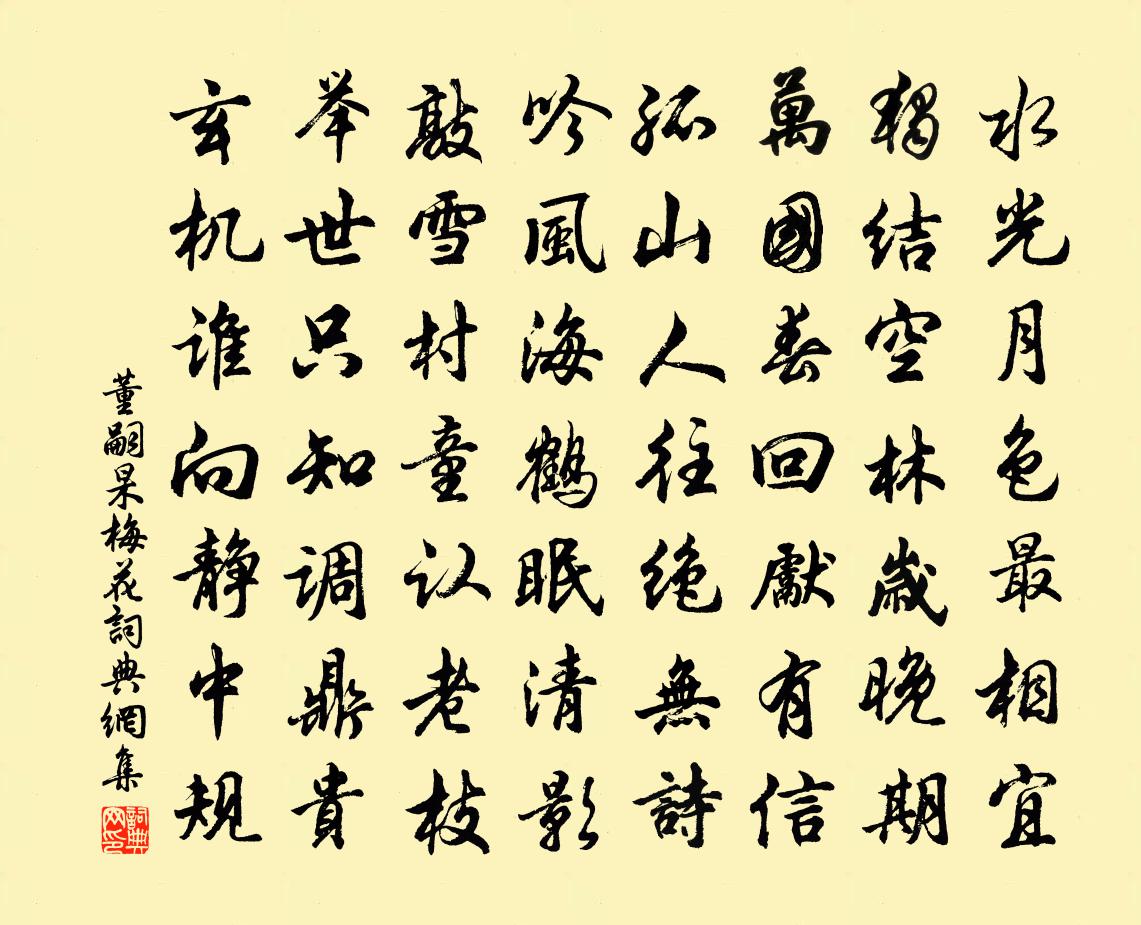 水光月色最相宜
獨结空林歲晚期
萬國春回獻有信
孤山人往绝無詩
吟風海鹤眠清影
敲雪村童认老枝
举世只知调鼎貴
玄机谁向静中規
董嗣杲梅花詞典網集
詞典网印